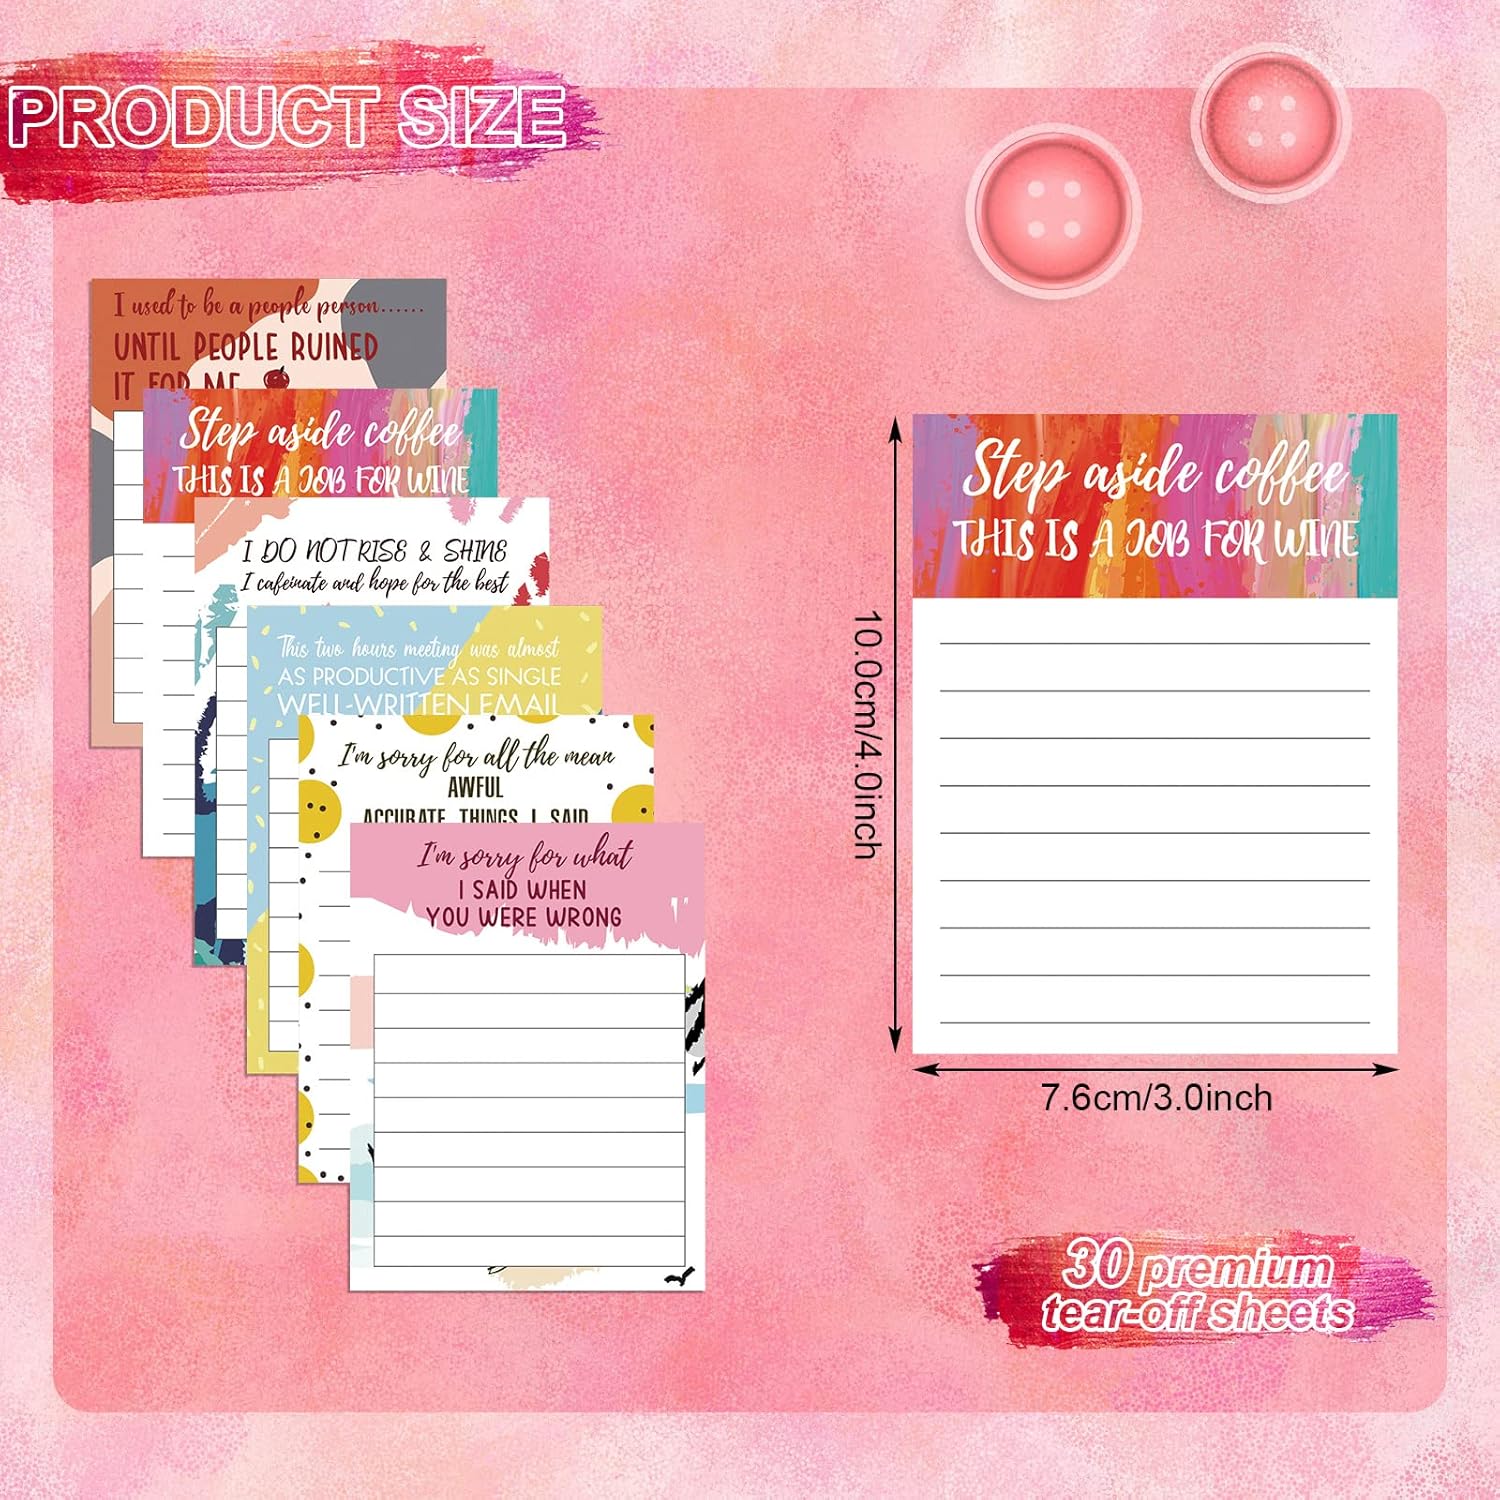 PRODUCT SIZE
I used to be a people person......
UNTIL PEOPLE RUINED
IT FOR ME
Step aside coffee
THIS IS A JOB FOR WINE
I DO NOT RISE & SHINE
I cafeinate and hope for the best
This two hours meeting was almost
AS PRODUCTIVE AS SINGLE
WELL-WRITTEN EMAIL
I'm sorry for all the mean
AWFUL
ACCURATE THINGS I SAID
I'm sorry for what
I SAID WHEN
YOU WERE WRONG
Step aside coffee
THIS IS A JOB FOR WINE
10.0cm/4.0inch
7.6cm/3.0inch
30 premium
tear-off sheets